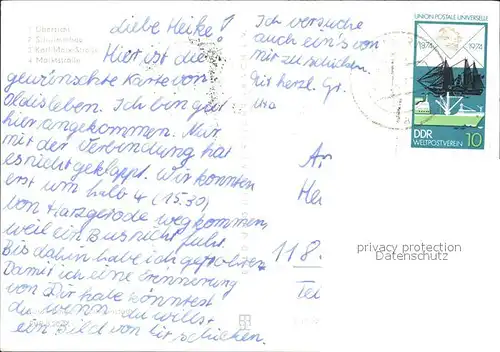 1 Übersicht
3 Karl-Marx-Straße
4 Marktstraße
liebe Heike!
Hier ist die
gewünschte Karte von
Oldisleben. Ich bin gut
hier angekommen. Nur
mit der Verbindung hat
es nicht geklappt. Wir konnten
erst um halb 4 (15.30)
von Harzgerode wegkommen,
weil ein Bus nicht fuhr.
Bis dahin habe ich
Damit ich eine Erinnerung
von Dir habe könntest
du wenn du willst
ein Bild von dir schicken.
Ich versuche
auch ein's von
mir zu schicken.
Mit herzl. Gr.
UNION POSTALE UNIVERSELLE
1874 1974
DDR
WELTPOSTVEREIN 10
An
118.
privacy protection
Datenschutz